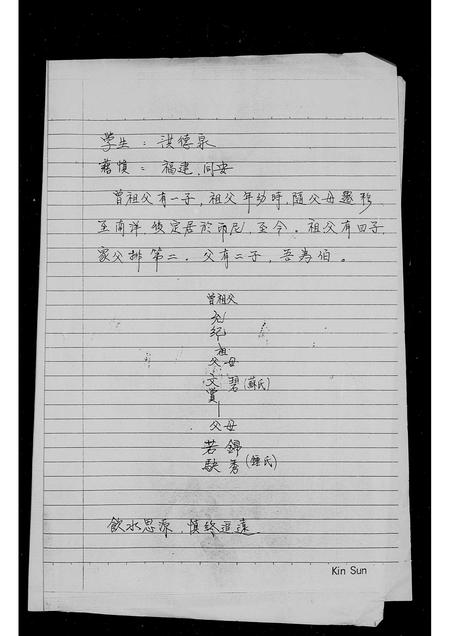 学生：洪德泉
藉慎：福建.同安
曾祖父有一子，祖父年幼時，隨父母遷移
至南洋後定居於印尼，至今。祖父有四子，
家父排第二．父有二子，吾為伯。
曾祖父
允
紀
祖
父母
文 碧(蘇氏)
賞
父母
若 錦
秀(鍾氏)
飲水思源，慎終追遠
Kin Sun